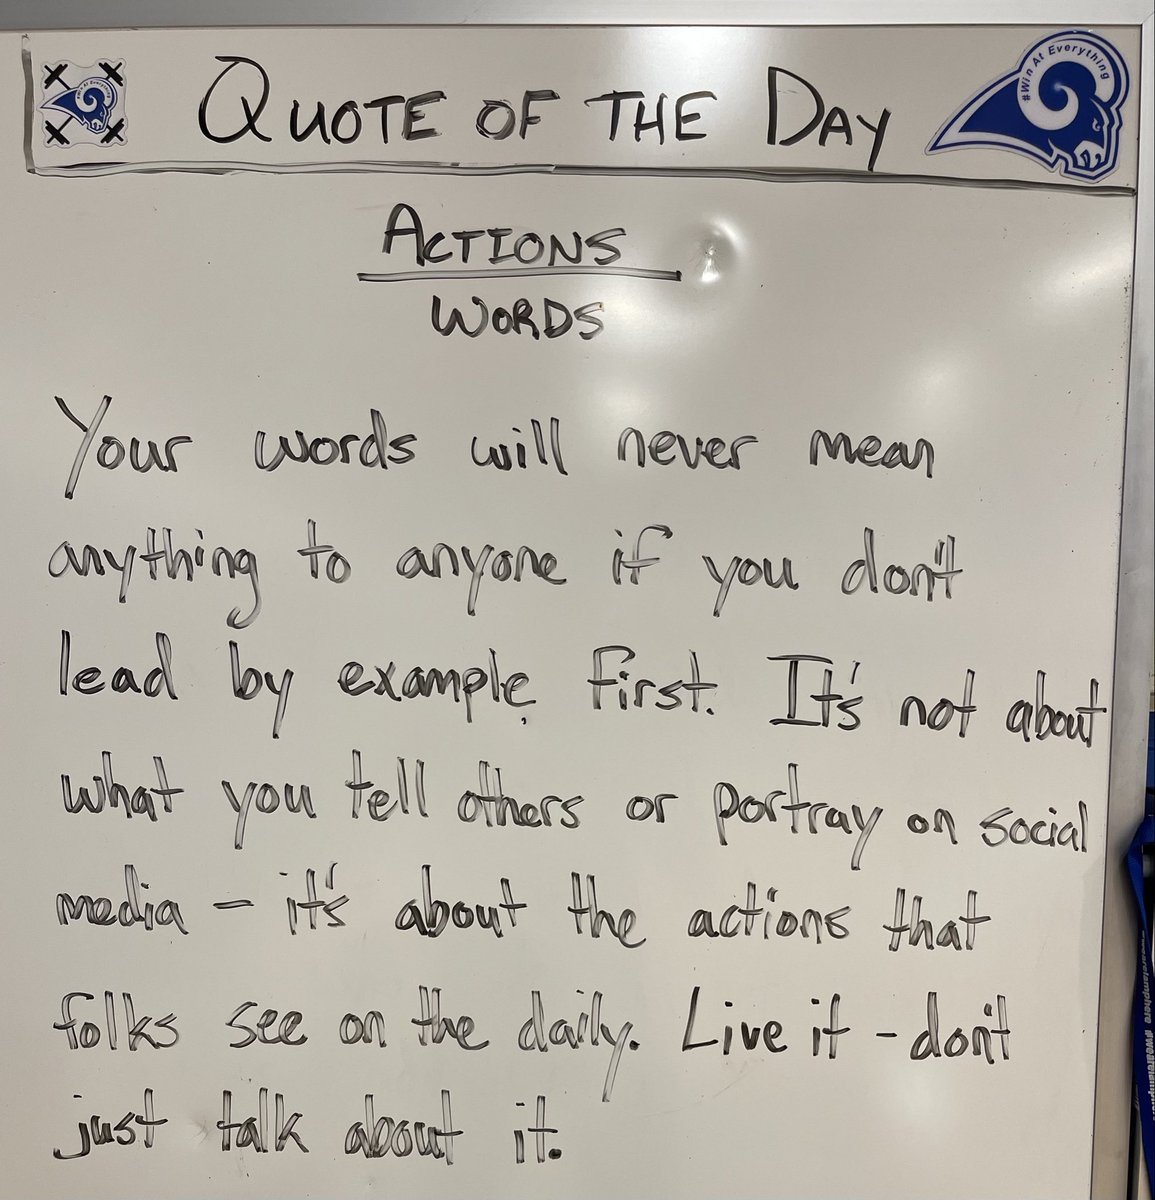 QUOTE OF THE DAY
#Win At Everything
ACTIONS
WORDS
Your words will never mean
anything to anyone if you don't
lead by example first. It's not about
what you tell others or portray on social
media – it's about the actions that
folks see on the daily. Live it – don't
just talk about it.
#wearelamphere #wearelamphere